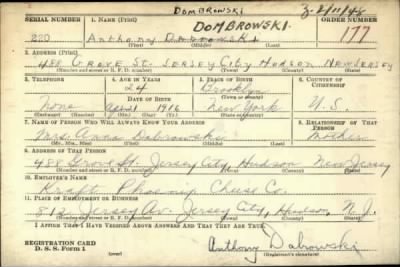 DOMBROWSKI
SERIAL NUMBER 1. NAME (Print) DOMBROWSKI. ORDER NUMBER
220 Anthony Dabrowski 177
2. ADDRESS (Print)
488 GROVE ST. JERSEY CITY HUDSON NEW JERSEY
(Number and street or R. F. D. number) (Town) (County) (State)
3. TELEPHONE 4. AGE IN YEARS 5. PLACE OF BIRTH 6. COUNTRY OF CITIZENSHIP
24 Brooklyn
DATE OF BIRTH (Town or county)
None April 1 1916 New York U.S.
(Exchange) (Number) (Mo.) (Day) (Yr.) (State or country)
7. NAME OF PERSON WHO WILL ALWAYS KNOW YOUR ADDRESS 8. RELATIONSHIP OF THAT PERSON
Mrs. Anna Dabrowski Mother
(Mr., Mrs., Miss) (First) (Middle) (Last)
9. ADDRESS OF THAT PERSON
488 Grove St. Jersey City, Hudson New Jersey
(Number and street or R. F. D. number) (Town) (County) (State)
10. EMPLOYER'S NAME
Kraft Phoenix Cheese Co.
11. PLACE OF EMPLOYMENT OR BUSINESS
812 Jersey Av. Jersey City, Hudson, N.J.
(Number and street or R. F. D. number) (Town) (County) (State)
I AFFIRM THAT I HAVE VERIFIED ABOVE ANSWERS AND THAT THEY ARE TRUE.
REGISTRATION CARD
D. S. S. Form 1
Anthony Dabrowski
(Registrant's signature)